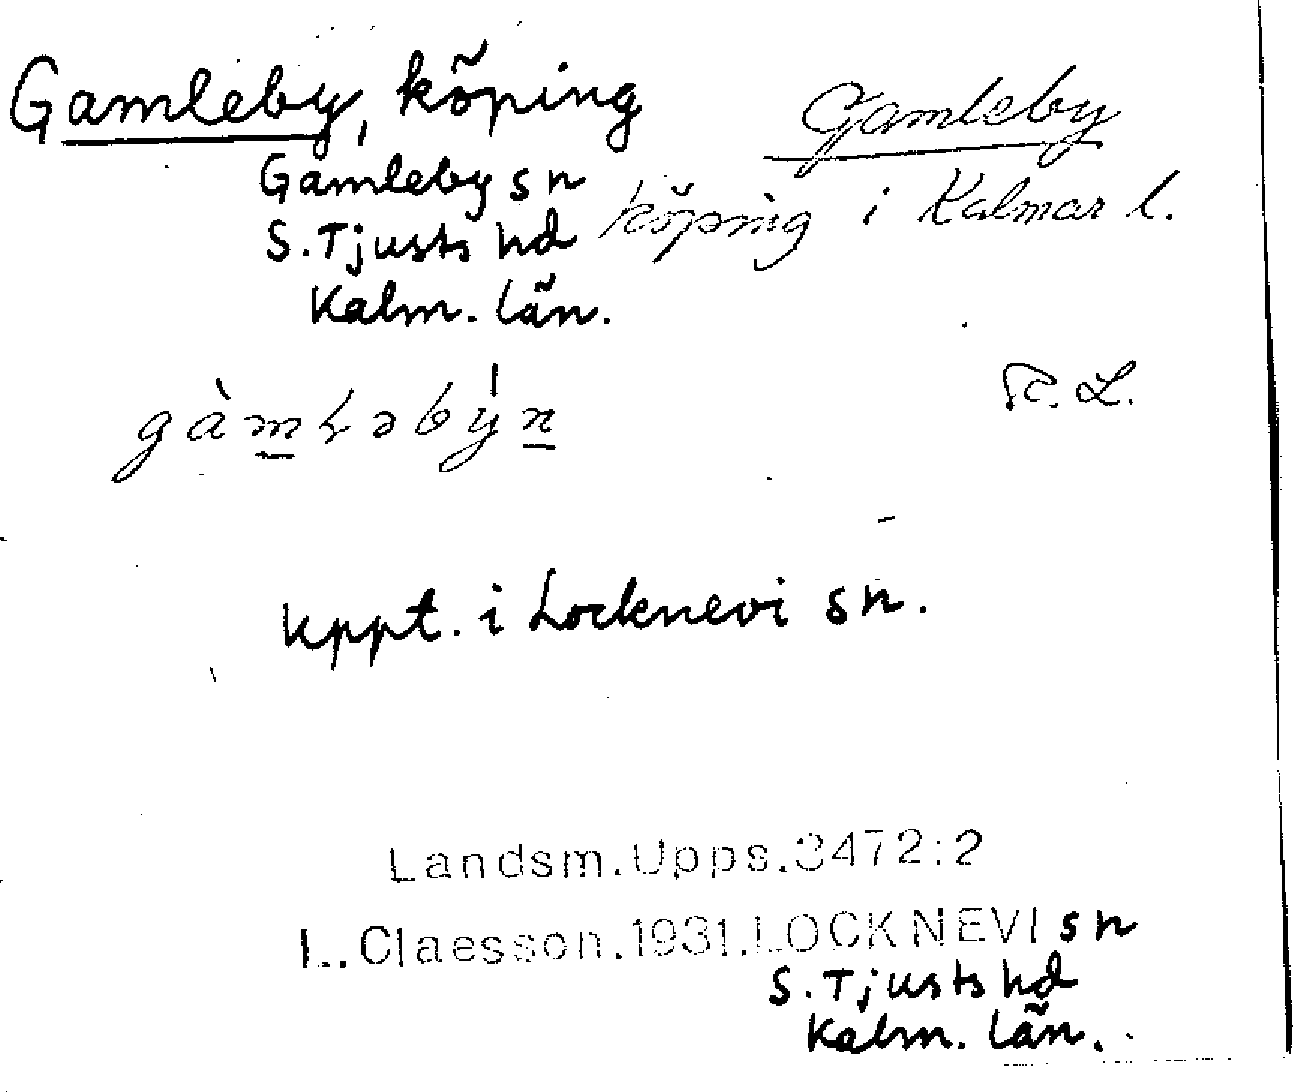 Gamleby, köping
Gamleby sn
S. Tjusts hd
Kalm. län.
Gamleby
köping i Kalmar l.
R. L.
kppt. i Locknevi sn.
Landsm.Upps.3472:2
L.Claesson.1931.LOCKNEVI sn
S. Tjusts hd
Kalm. län.